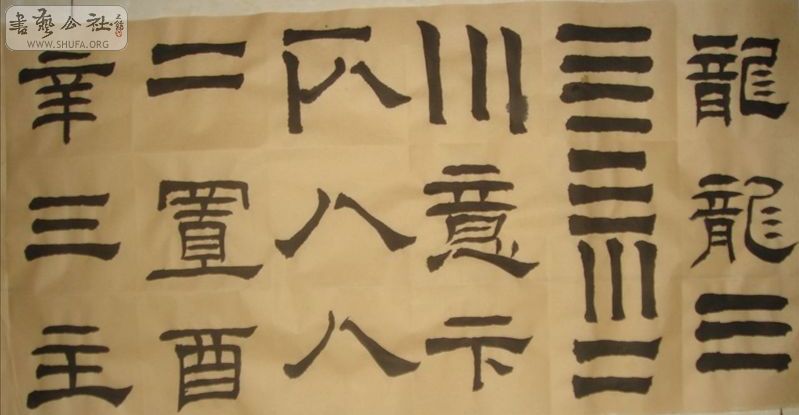 書藝公社
WWW.SHUFA.ORG
龍龍三
亖三川二
川意卞
八八
二置酉
辛三主